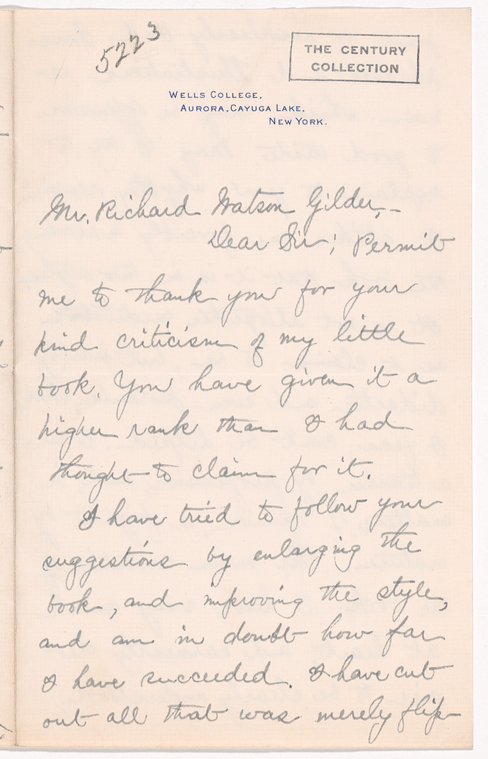 5223
THE CENTURY
COLLECTION
WELLS COLLEGE,
AURORA, CAYUGA LAKE,
NEW YORK.
Mr. Richard Watson Gilder,—
Dear Sir; Permit
me to thank you for your
kind criticism of my little
book. You have given it a
higher rank than I had
thought to claim for it.
I have tried to follow your
suggestions by enlarging the
book, and improving the style,
and am in doubt how far
I have succeeded. I have cut
out all that was merely flip-